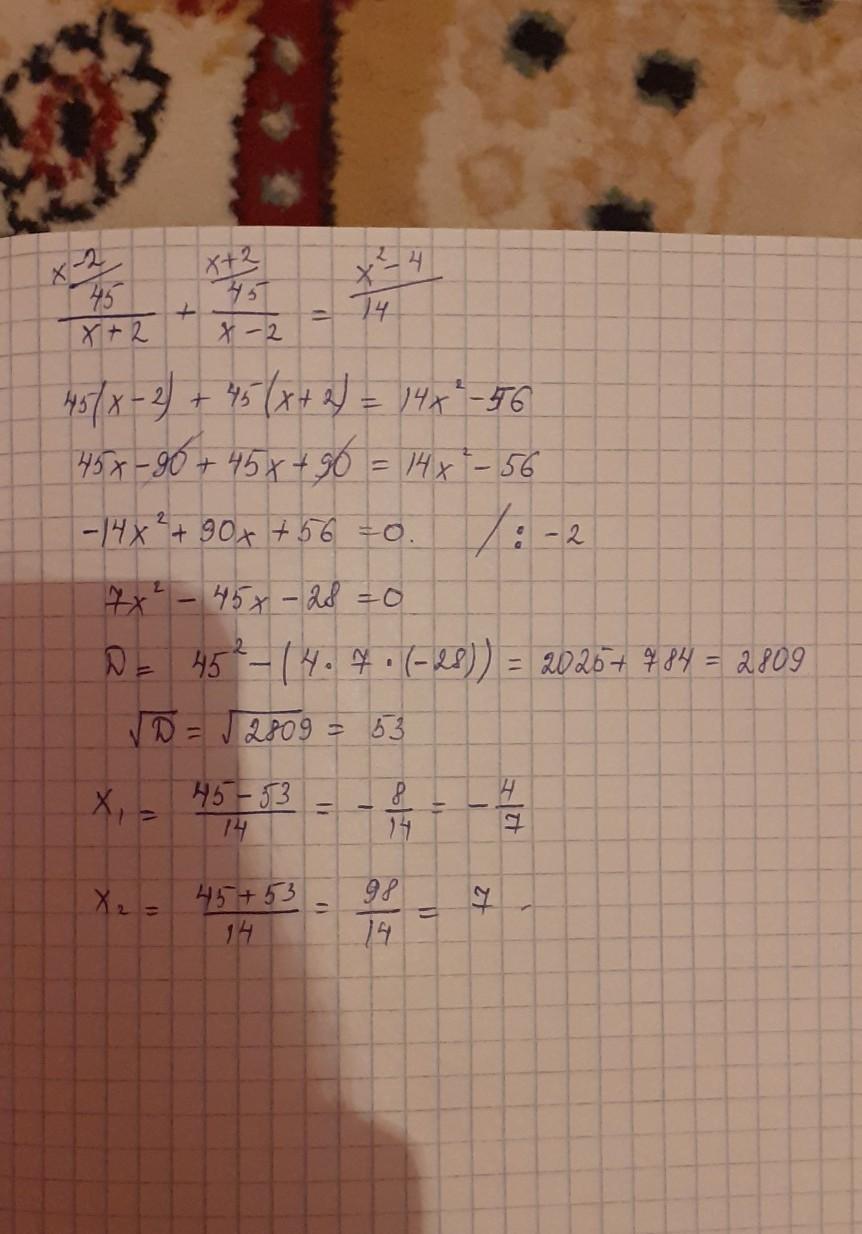 x-2/ x+2/ x²-4/
45/(x+2) + 45/(x-2) = 14
45(x-2) + 45(x+2) = 14x²-56
45x-90+45x+90 = 14x²-56
-14x²+90x+56=0. /:-2
7x²-45x-28=0
D= 45²-(4·7·(-28))= 2025+784=2809
√D=√2809= 53
x₁= (45-53)/14 = -8/14 = -4/7
x₂= (45+53)/14 = 98/14 = 7